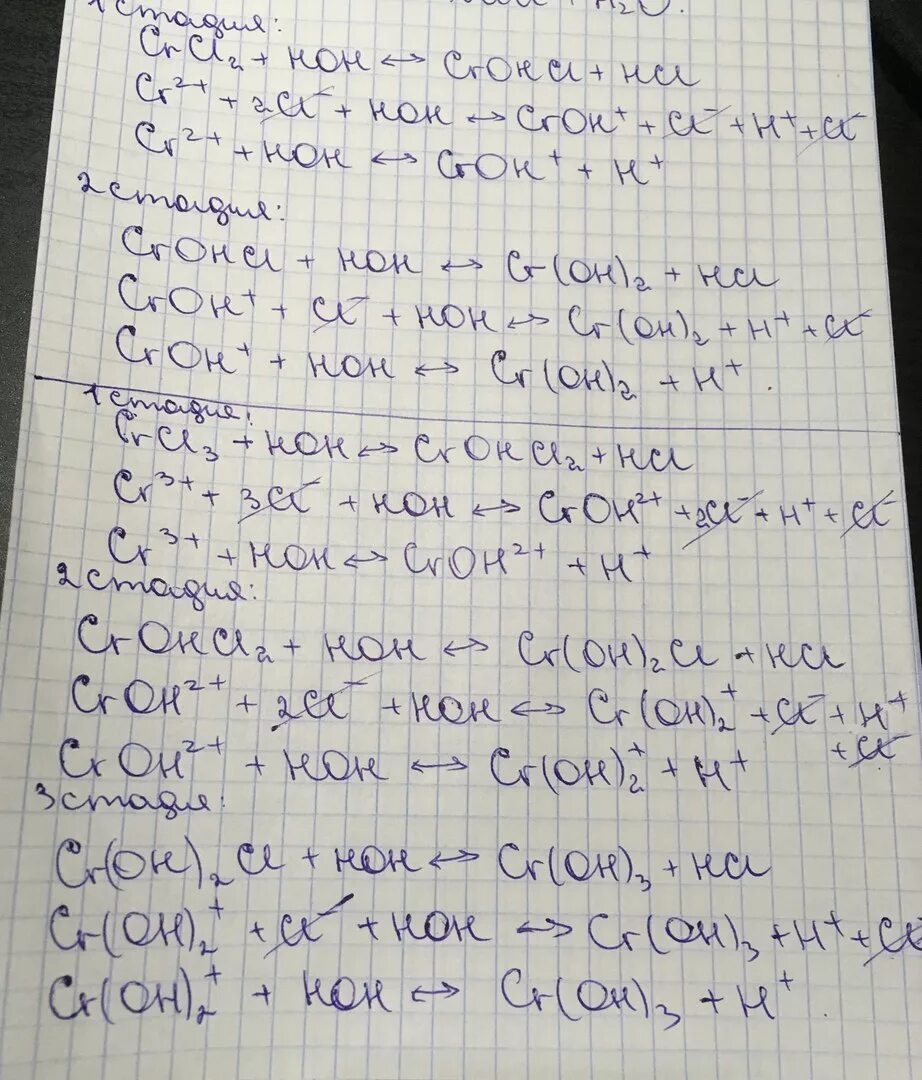 + H₂O.
1 стадия:
CrCl₂ + HOH ↔ CrOHCl + HCl
Cr²⁺ + 2Cl⁻ + HOH ↔ CrOH⁺ + Cl⁻ + H⁺ + Cl⁻
Cr²⁺ + HOH ↔ CrOH⁺ + H⁺
2 стадия:
CrOHCl + HOH ↔ Cr(OH)₂ + HCl
CrOH⁺ + Cl⁻ + HOH ↔ Cr(OH)₂ + H⁺ + Cl⁻
CrOH⁺ + HOH ↔ Cr(OH)₂ + H⁺.
1 стадия:
CrCl₃ + HOH ↔ CrOHCl₂ + HCl
Cr³⁺ + 3Cl⁻ + HOH ↔ CrOH²⁺ + 2Cl⁻ + H⁺ + Cl⁻
Cr³⁺ + HOH ↔ CrOH²⁺ + H⁺
2 стадия:
CrOHCl₂ + HOH ↔ Cr(OH)₂Cl + HCl
CrOH²⁺ + 2Cl⁻ + HOH ↔ Cr(OH)₂⁺ + Cl⁻ + H⁺
+ Cl⁻
CrOH²⁺ + HOH ↔ Cr(OH)₂⁺ + H⁺
3 стадия:
Cr(OH)₂Cl + HOH ↔ Cr(OH)₃ + HCl
Cr(OH)₂⁺ + Cl⁻ + HOH ↔ Cr(OH)₃ + H⁺ + Cl⁻
Cr(OH)₂⁺ + HOH ↔ Cr(OH)₃ + H⁺.